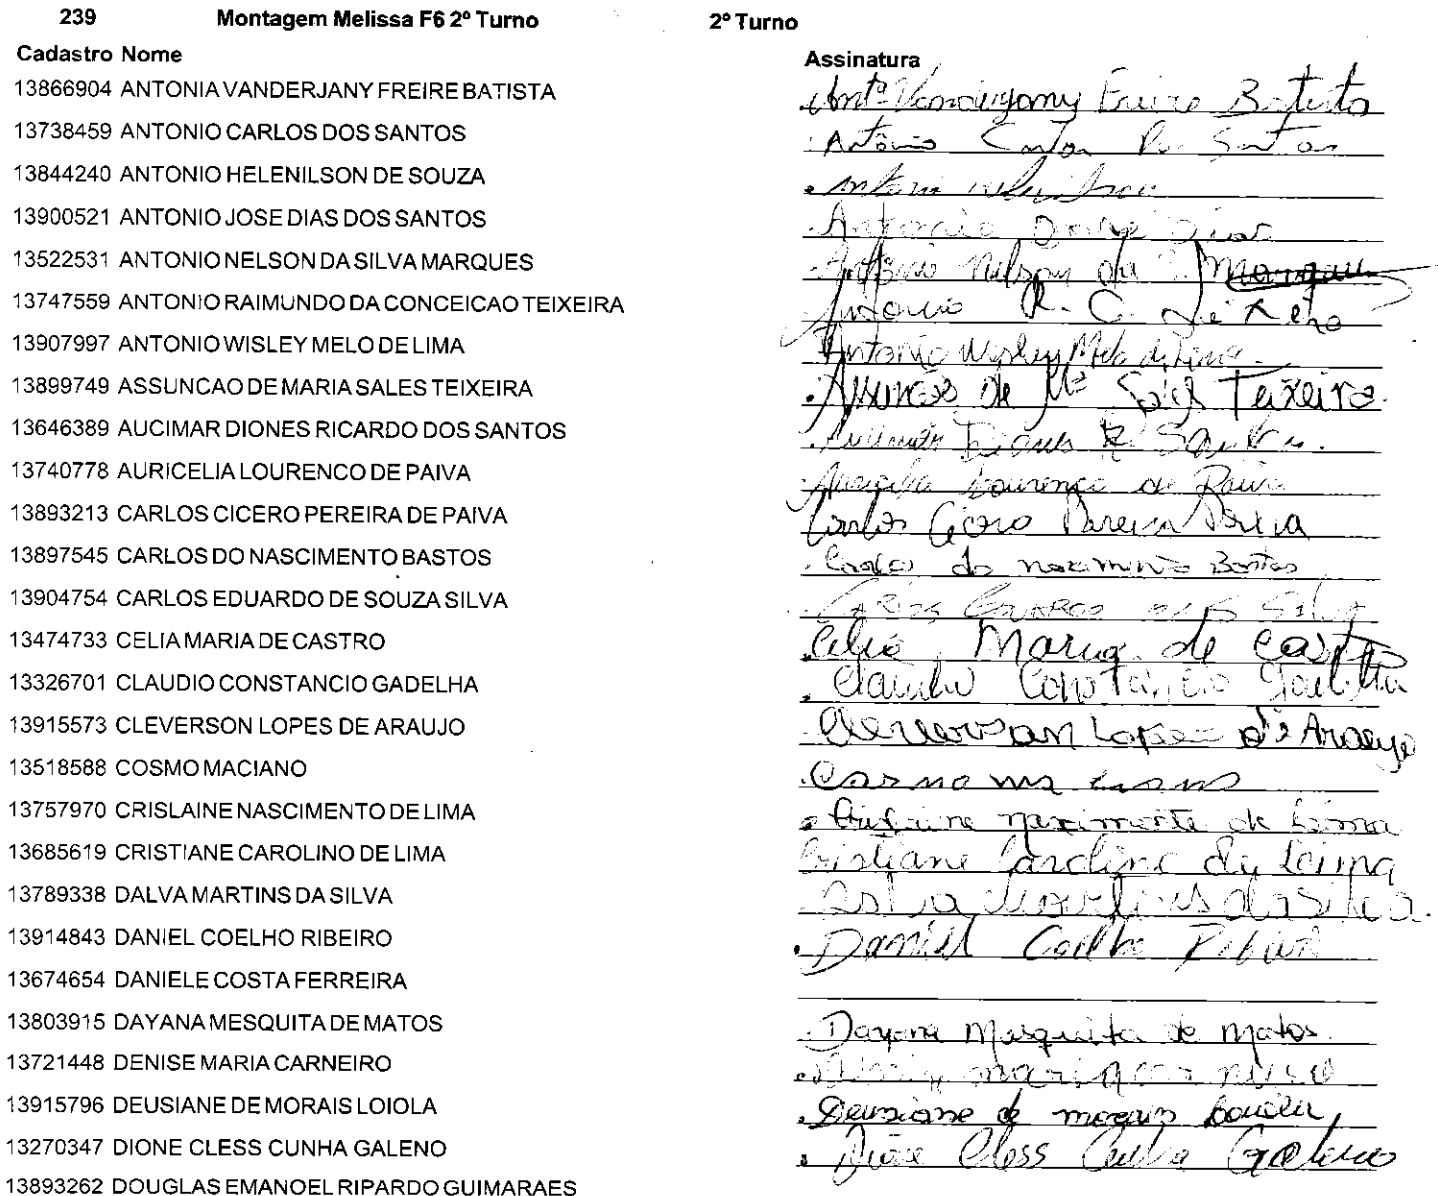 239 Montagem Melissa F6 2º Turno 2º Turno
Cadastro Nome Assinatura
13866904 ANTONIA VANDERJANY FREIRE BATISTA Antª Vanderjany Freire Batista
13738459 ANTONIO CARLOS DOS SANTOS Antônio Carlos Santos
13844240 ANTONIO HELENILSON DE SOUZA Antonio
13900521 ANTONIO JOSE DIAS DOS SANTOS Antonio Dias
13522531 ANTONIO NELSON DA SILVA MARQUES Antônio Nelson da S. Marques
13747559 ANTONIO RAIMUNDO DA CONCEICAO TEIXEIRA Antonio R. C.
13907997 ANTONIO WISLEY MELO DE LIMA Antonio Wisley Melo de Lima
13899749 ASSUNCAO DE MARIA SALES TEIXEIRA Assunção de Mª Sales Teixeira
13646389 AUCIMAR DIONES RICARDO DOS SANTOS
13740778 AURICELIA LOURENCO DE PAIVA Lourenço de Paiva
13893213 CARLOS CICERO PEREIRA DE PAIVA Carlos Cicero Pereira
13897545 CARLOS DO NASCIMENTO BASTOS Carlos do
13904754 CARLOS EDUARDO DE SOUZA SILVA CARLOS Silva
13474733 CELIA MARIA DE CASTRO Celia Maria de Castro
13326701 CLAUDIO CONSTANCIO GADELHA Claudio Constancio Gadelha
13915573 CLEVERSON LOPES DE ARAUJO Lopes de Araujo
13518588 COSMO MACIANO
13757970 CRISLAINE NASCIMENTO DE LIMA de Lima
13685619 CRISTIANE CAROLINO DE LIMA Cristiane Carolino de Leima
13789338 DALVA MARTINS DA SILVA
13914843 DANIEL COELHO RIBEIRO Daniel Coelho
13674654 DANIELE COSTA FERREIRA
13803915 DAYANA MESQUITA DE MATOS Dayana Mesquita de Matos
13721448 DENISE MARIA CARNEIRO maria
13915796 DEUSIANE DE MORAIS LOIOLA Deusiane de morais
13270347 DIONE CLESS CUNHA GALENO Dione Cless Cunha Galeno
13893262 DOUGLAS EMANOEL RIPARDO GUIMARAES